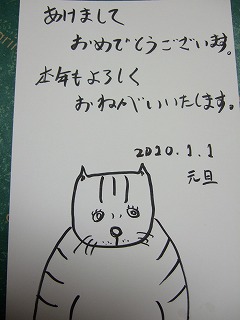 あけまして
おめでとうございます。
本年もよろしく
おねがいいたします。
2010.1.1
元旦